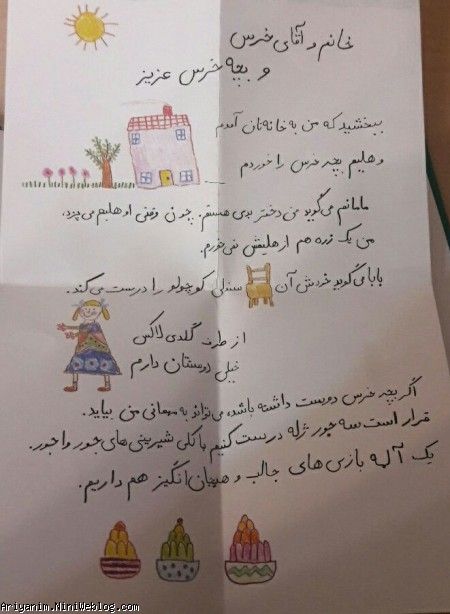 خانم و آقای خرس
و بچه خرس عزیز
ببخشید که من به خانه‌تان آمدم
و هلیم بچه خرس را خوردم
مامانم می‌گوید من دختر بدی هستم. چون وقتی او هلیم می‌پزد،
من یک زره هم از هلیمش نمی‌خورم.
بابا می‌گوید خودش آن صندلی کوچولو را درست می‌کند.
از طرف گلدی لاکس
خیلی دوستتان دارم
اگر بچه خرس دوست داشته باشد، می‌تواند به مهمانی من بیاید.
قرار است سه جور ژله درست کنیم با کلی شیرینی‌های جور واجور.
یک آلمه بازی‌های جالب و هیجان انگیز هم داریم.
Ariyanim.NiniWeblog.com